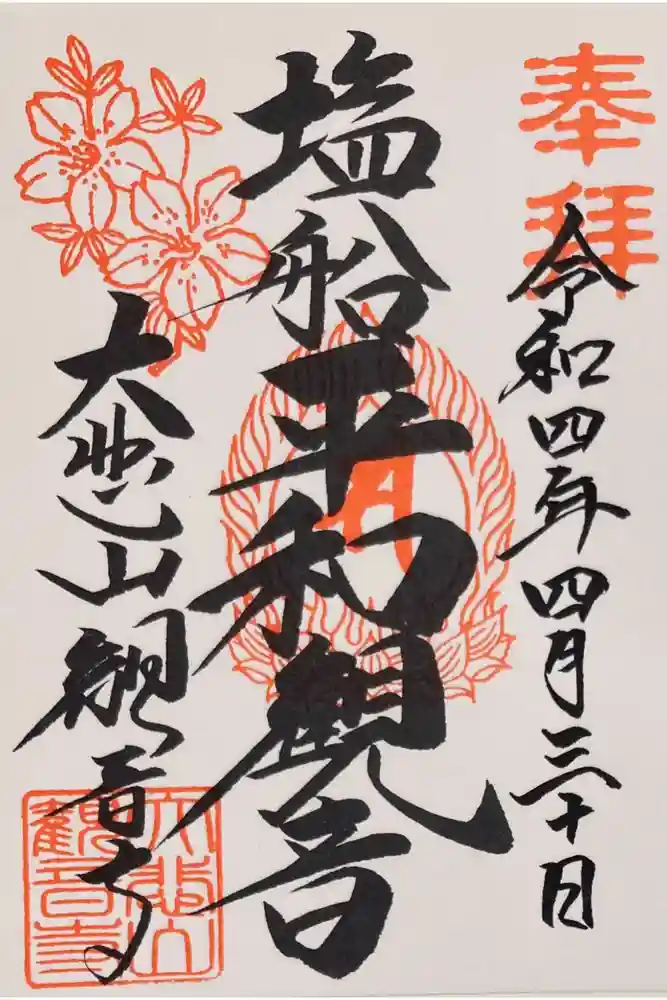 奉拝
令和四年四月三十日
塩船平和観音
大悲山観音寺
大悲山
観音寺